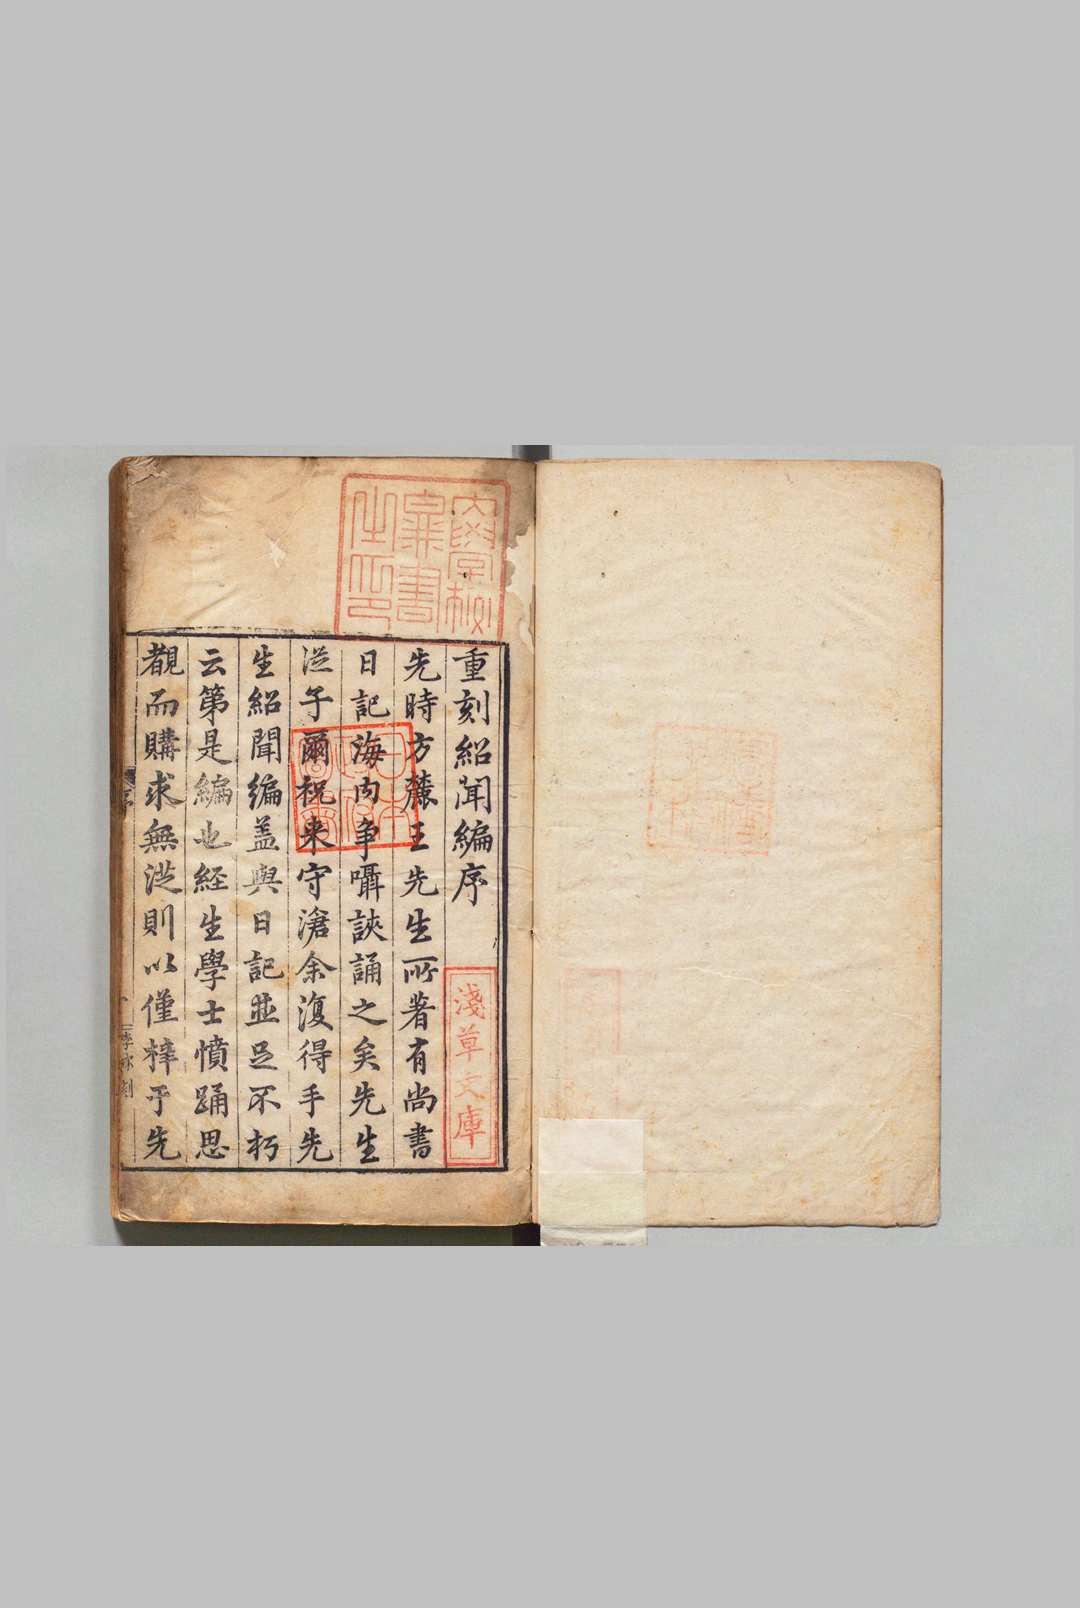 重刻紹聞編序
先時方麓王先生所著有尚書
日記海内争囁誦誦之矣先生
從子爾祝来守滄余復得手先
生紹聞編盖與日記並足不朽
云第是編也経生學士憤踊思
覩而購求無從則以僅梓于先
淺草文庫
日本
政府
圖書
序
刻